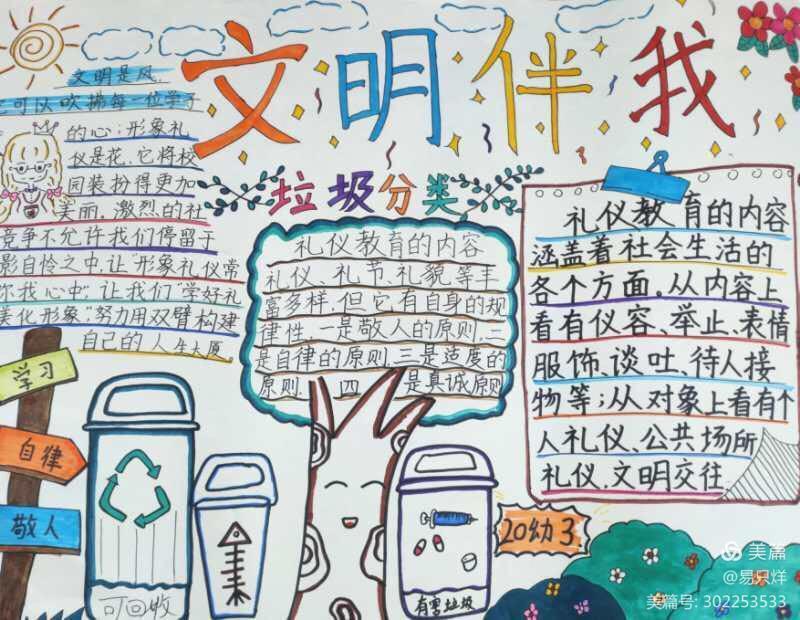 文明伴我
文明是风,
它可以吹拂每一位学子
的心;形象礼
仪是花,它将校
园装扮得更加
美丽。激烈的社
会竞争不允许我们停留于
影自怜之中,让"形象礼仪常
你我心中",让我们"学好礼
美化形象"努力用双臂构建
自己的人生大厦。
垃圾分类
礼仪教育的内容
礼仪、礼节、礼貌等丰
富多样,但它有自身的规
律性,一是敬人的原则,二
是自律的原则,三是适度的
原则,四是真诚原则
礼仪教育的内容
涵盖着社会生活的
各个方面。从内容上
看有仪容、举止、表情
服饰、谈吐、待人接
物等;从对象上看有个
人礼仪、公共场所
礼仪,文明交往
学习
自律
敬人
可回收
有害垃圾
20幼3
美篇
@易只烊
美篇号: 302253533